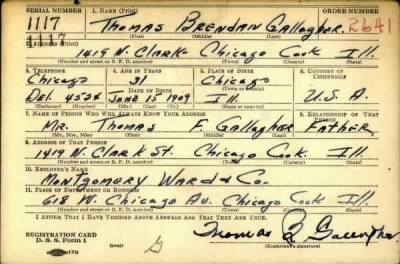 SERIAL NUMBER 1. NAME (Print) ORDER NUMBER
1117 THOMAS BRENDAN GALLAGHER 2641
1117 (First) (Middle) (Last)
2. ADDRESS (Print)
1419 N. CLARK CHICAGO COOK ILL.
(Number and street or R. F. D. number) (Town) (County) (State)
3. TELEPHONE 4. AGE IN YEARS 5. PLACE OF BIRTH 6. COUNTRY OF CITIZENSHIP
CHICAGO 31 CHICAGO
DATE OF BIRTH (Town or county)
DEL. 4534 JUNE 15 1909 ILL. U.S.A.
(Exchange) (Number) (Mo.) (Day) (Yr.) (State or country)
7. NAME OF PERSON WHO WILL ALWAYS KNOW YOUR ADDRESS 8. RELATIONSHIP OF THAT PERSON
MR. THOMAS F. GALLAGHER FATHER
(Mr., Mrs., Miss) (First) (Middle) (Last)
9. ADDRESS OF THAT PERSON
1419 N. CLARK ST. CHICAGO COOK ILL.
(Number and street or R. F. D. number) (Town) (County) (State)
10. EMPLOYER'S NAME
MONTGOMERY WARD & CO.
11. PLACE OF EMPLOYMENT OR BUSINESS
618 W. CHICAGO AV. CHICAGO COOK ILL.
(Number and street or R. F. D. number) (Town) (County) (State)
I AFFIRM THAT I HAVE VERIFIED ABOVE ANSWERS AND THAT THEY ARE TRUE.
REGISTRATION CARD
D. S. S. Form 1 Thomas B Gallagher
(over) (Registrant's signature)